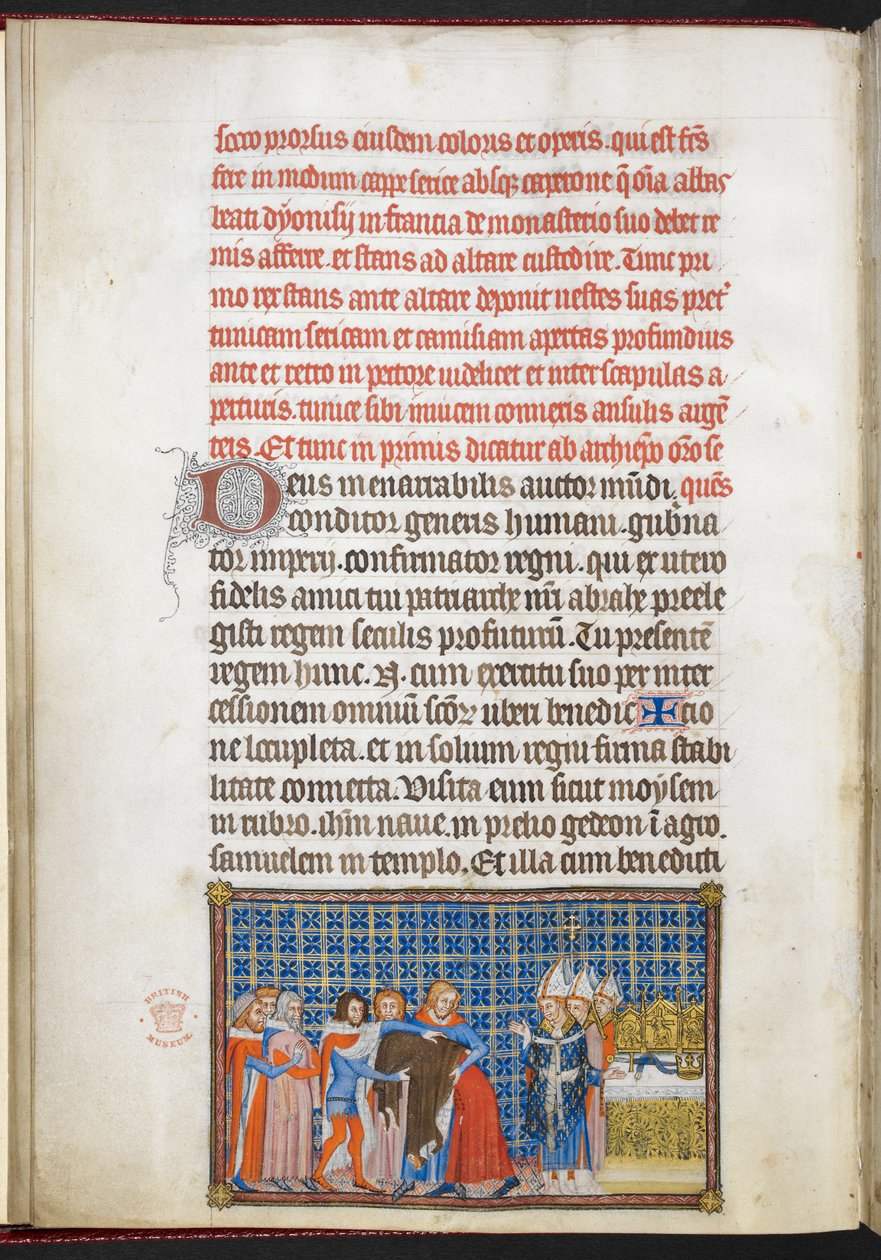 socco prorsus eiusdem coloris et operis. qui est fc̄s
fere in modum cappe serice absq; caperone q̄ om̄ia abbas
beati dyonisij in francia de monasterio suo debet re
mis afferre. et stans ad altare custodire. Tunc pri
mo rex stans ante altare deponit uestes suas pret᷒
tunicam sericam et camisiam apertas profundius
ante et retro in pectore uidelicet et inter scapulas a
perturis. tunice sibi inuicem connexis ansulis argē
teis. Et tunc in primis dicatur ab archiep̄o or̄o se
Deus inenarrabilis auctor mūdi. quēs
conditor generis humani. gub̄na
tor imperij. confirmator regni. qui ex utero
fidelis amici tui patriarche nr̄i abrahe preele
gisti regem seculis profuturū. Tu presentē
regem hunc. N. cum exercitu suo per inter
cessionem omniū sc̄oꝝ uberi benedic✠tio
ne locupleta. et in solium regni firma stabi
litate connecta. Visita eum sicut moysem
in rubro. ih̄m naue. in prelio gedeon ī agro.
samuelem in templo. Et illa eum benedicti
BRITISH
MUSEUM